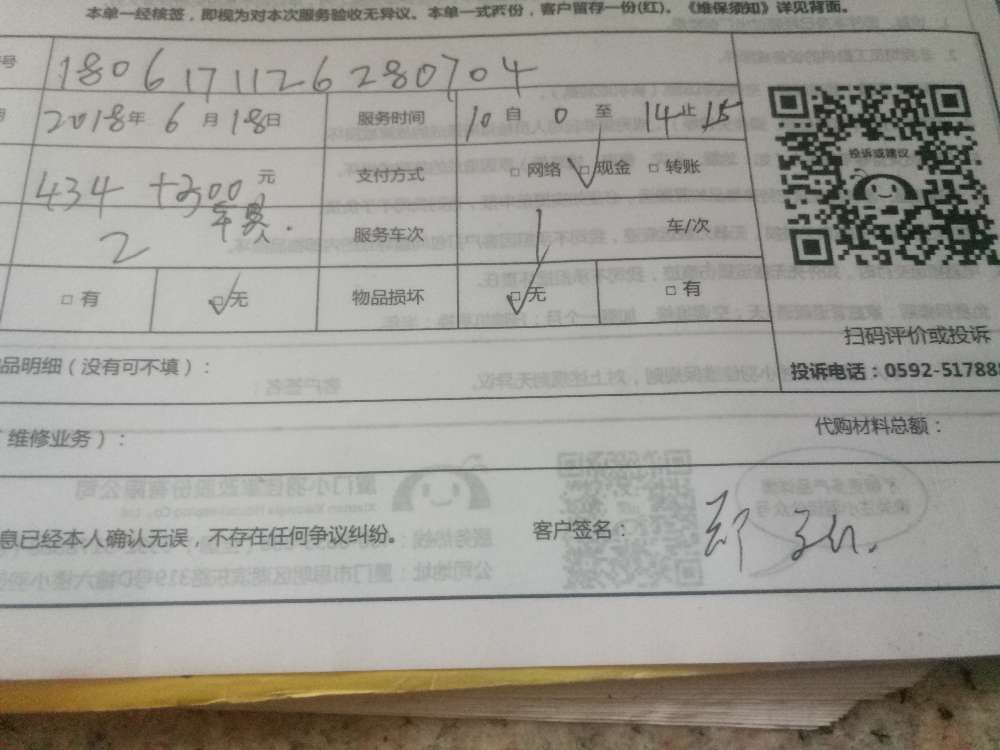 本单一经核签，即视为对本次服务验收无异议。本单一式两份，客户留存一份(红)。《维保须知》详见背面。
号 1806171126280704
2018年 6 月 18日 服务时间 10 自 0 至 14 止 15
434 +300 元 支付方式 □ 网络 □ 现金 □ 转账
车费.
2 人 服务车次 1 车/次
□ 有 □ 无 物品损坏 □ 无 □ 有
投诉或建议
扫码评价或投诉
品明细（没有可不填）：
投诉电话：0592-51788
维修业务）：
代购材料总额：
息已经本人确认无误，不存在任何争议纠纷。 客户签名：